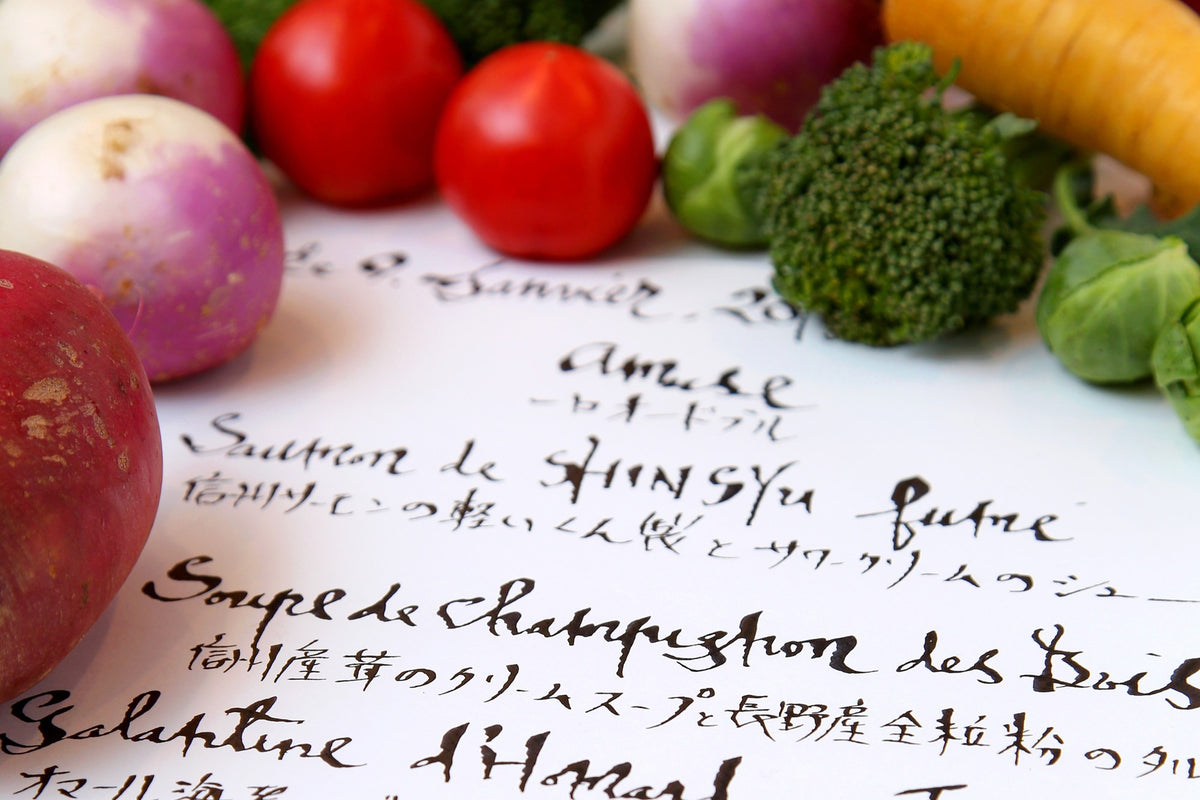 de 9. Janvier. 20
amuse
一口オードブル
Saumon de SHINSYu fumé
信州サーモンの軽いくん製とサワークリームのシュー
Soupe de Champignon des Bois
信州産茸のクリームスープと長野産全粒粉のタル
Galantine d'Homard
オマール海老